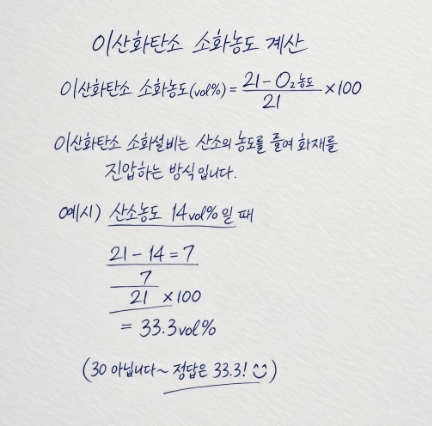 이산화탄소 소화농도 계산
이산화탄소 소화농도(vol%) = (21-O₂농도)/21 ×100
이산화탄소 소화설비는 산소의 농도를 줄여 화재를
진압하는 방식입니다.
예시) 산소농도 14vol%일 때
21-14=7
7/21 ×100
= 33.3vol%
(30 아닙니다~ 정답은 33.3! ☺)